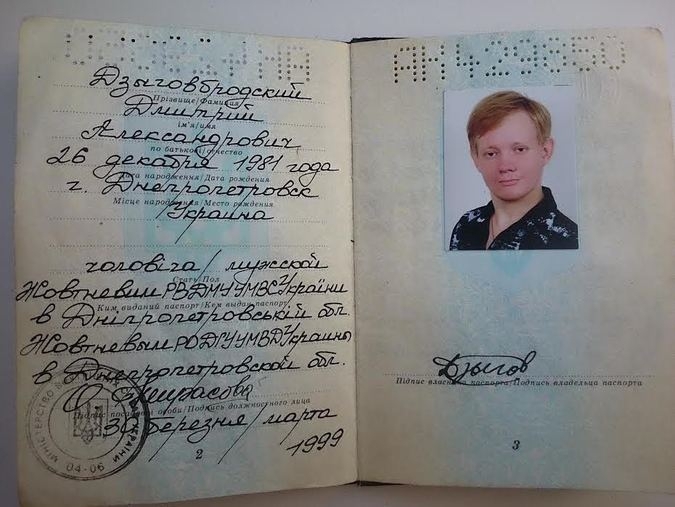 АН429650
Дзыговбродский
Прізвище/Фамилия
Дмитрий
ім'я/имя
Александрович
по батькові/отчество
26 декабря 1981 года
Дата народження/Дата рождения
г. Днепропетровск
Місце народження/Место рождения
Украина
чоловіча/мужской
Стать/Пол
Жовтневим РВДМУ УМВС України
Ким виданий паспорт/Кем выдан паспорт
в Дніпропетровській обл.
Жовтневым РОДМУ УМВД Украины
в Днепропетровской обл.
Підпис посадової особи/Подпись должностного лица
30 березня/марта
1999
МІНІСТЕРСТВО
УКРАЇНИ
04-06
2
АН429650
Дзыгов
Підпис власника паспорта/Подпись владельца паспорта
3